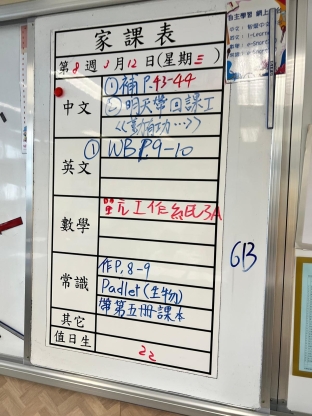 家課表
第8週 1月12日(星期三)
中文
①補P.43-44
②明天帶回課工
英文
①WB P.9-10
數學
單元工作紙E3A
常識
作P.8-9
Padlet(生物)
帶第五冊課本
其它
值日生
22
6B
自主學習 網上